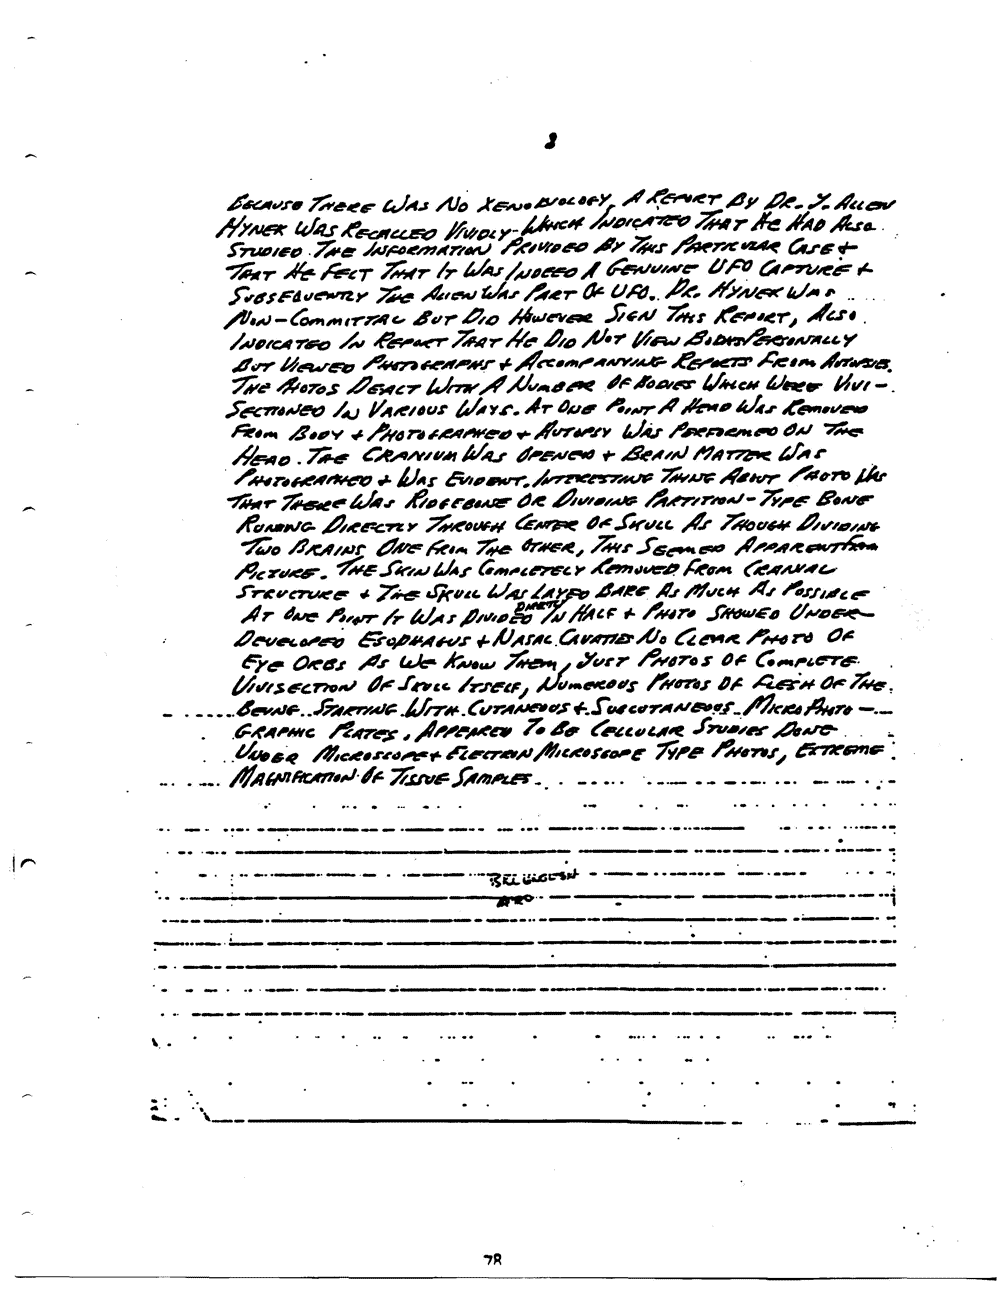 8
BECAUSE THERE WAS NO XENOBIOLOGY, A REPORT BY DR. J. ALLEN
HYNEK WAS RECALLED VIVIDLY-WHICH INDICATED THAT HE HAD ALSO
STUDIED THE INFORMATION PROVIDED BY THIS PARTICULAR CASE +
THAT HE FELT THAT IT WAS INDEED A GENUINE UFO CAPTURE +
SUBSEQUENTLY THE ALIEN WAS PART OF UFO. DR. HYNEK WAS
NON-COMMITTAL BUT DID HOWEVER SIGN THIS REPORT, ALSO
INDICATED IN REPORT THAT HE DID NOT VIEW BODIES PERSONALLY
BUT VIEWED PHOTOGRAPHS + ACCOMPANYING REPORTS FROM AUTOPSIES.
THE PHOTOS DEALT WITH A NUMBER OF BODIES WHICH WERE VIVI-
SECTIONED IN VARIOUS WAYS. AT ONE POINT A HEAD WAS REMOVED
FROM BODY + PHOTOGRAPHED + AUTOPSY WAS PERFORMED ON THE
HEAD. THE CRANIUM WAS OPENED + BRAIN MATTER WAS
PHOTOGRAPHED + WAS EVIDENT. INTERESTING THING ABOUT PHOTO WAS
THAT THERE WAS RIDGEBONE OR DIVIDING PARTITION-TYPE BONE
RUNNING DIRECTLY THROUGH CENTER OF SKULL AS THOUGH DIVIDING
TWO BRAINS ONE FROM THE OTHER, THIS SEEMED APPARENT FROM
PICTURE. THE SKIN WAS COMPLETELY REMOVED FROM CRANIAL
STRUCTURE + THE SKULL WAS LAYED BARE AS MUCH AS POSSIBLE
AT ONE POINT IT WAS DIVIDED DIRECTLY IN HALF + PHOTO SHOWED UNDER-
DEVELOPED ESOPHAGUS + NASAL CAVATIES NO CLEAR PHOTO OF
EYE ORBS AS WE KNOW THEM, JUST PHOTOS OF COMPLETE
VIVISECTION OF SKULL ITSELF, NUMEROUS PHOTOS OF FLESH OF THE
BEING STARTING WITH CUTANEOUS + SUBCUTANEOUS MICRO PHOTO-
GRAPHIC PLATES, APPEARED TO BE CELLULAR STUDIES DONE
UNDER MICROSCOPE + ELECTRON MICROSCOPE TYPE PHOTOS, EXTREME
MAGNIFICATION OF TISSUE SAMPLES
78